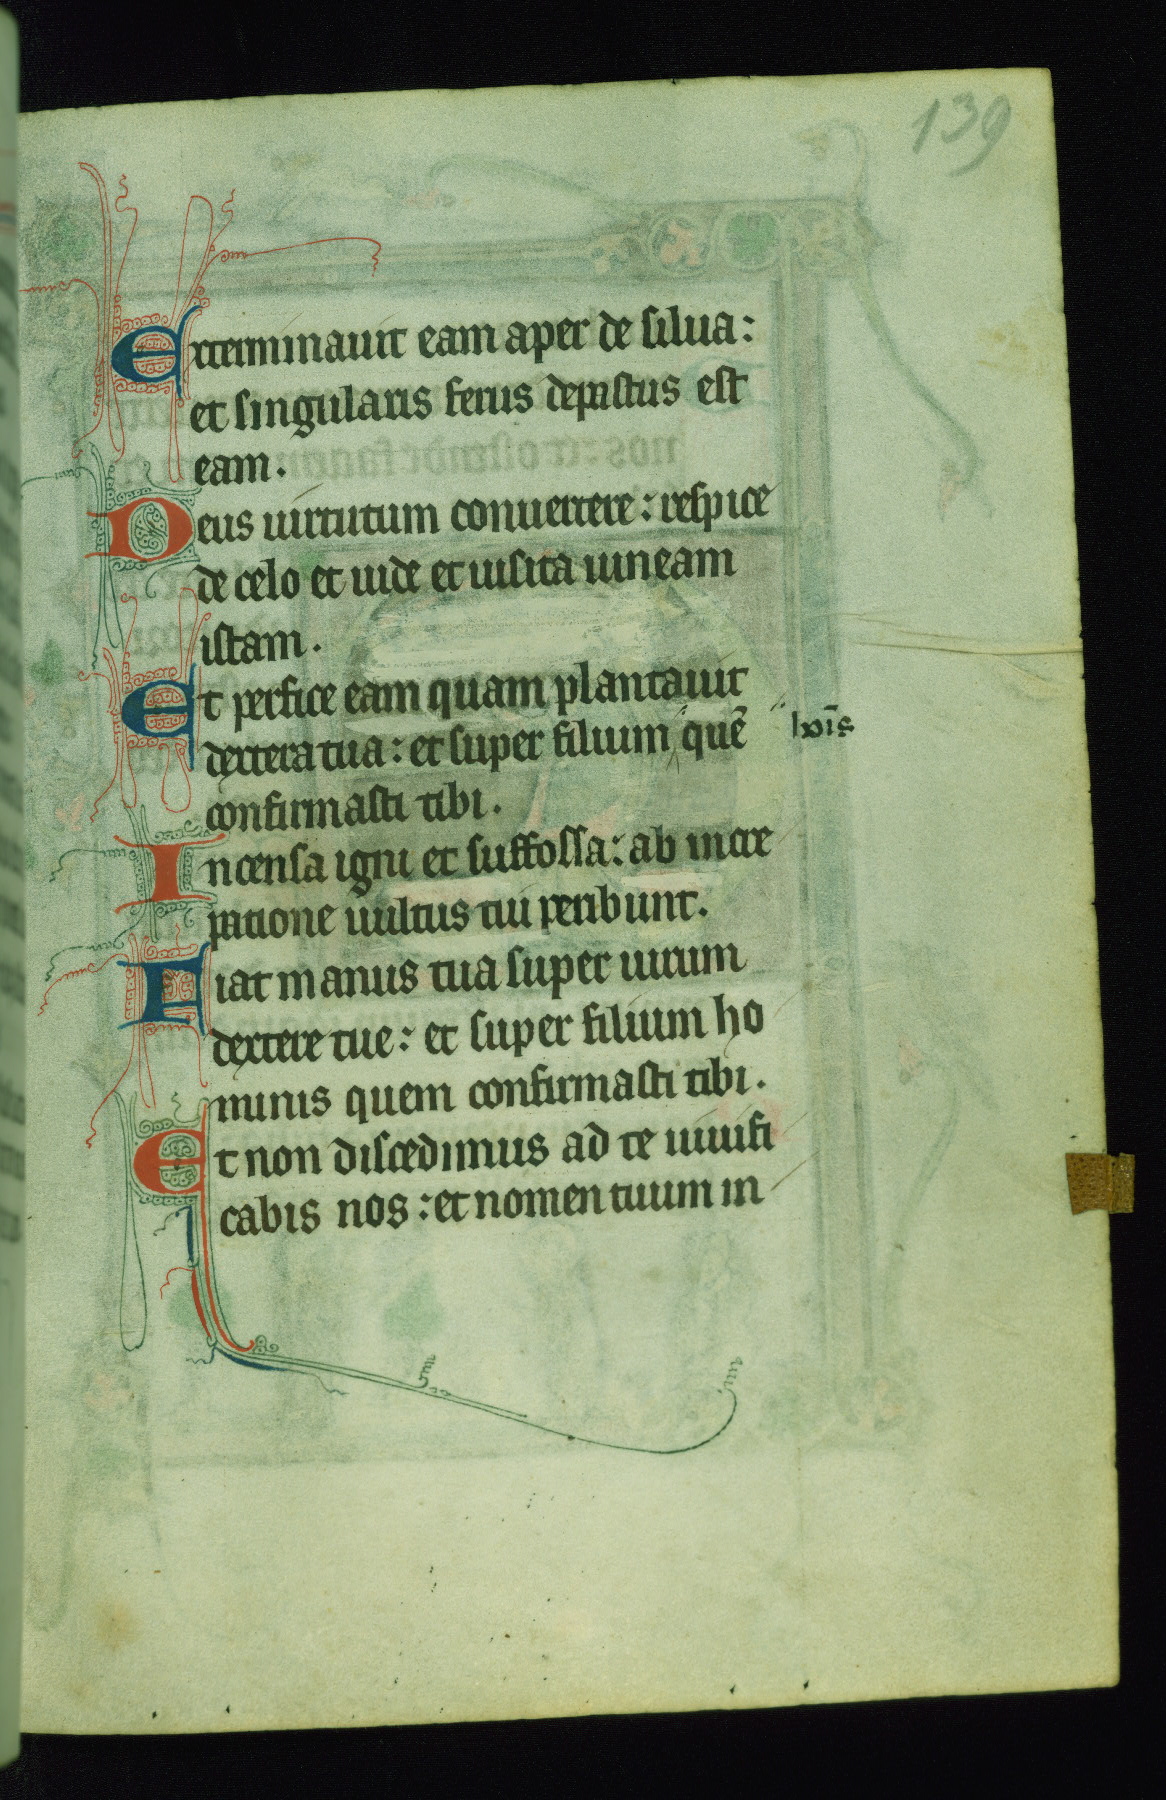 139
Exterminauit eam aper de silua:
et singularis ferus depastus est
eam.
Deus uirtutum conuertere: respice
de celo et uide et uisita uineam
istam.
Et perfice eam quam plantauit
dextera tua: et super filium quē
hoīs
confirmasti tibi.
Incensa igni et suffossa: ab incre
patione uultus tui peribunt.
Fiat manus tua super uirum
dextere tue: et super filium ho
minis quem confirmasti tibi.
Et non discedimus ad te uiuifi
cabis nos: et nomen tuum in